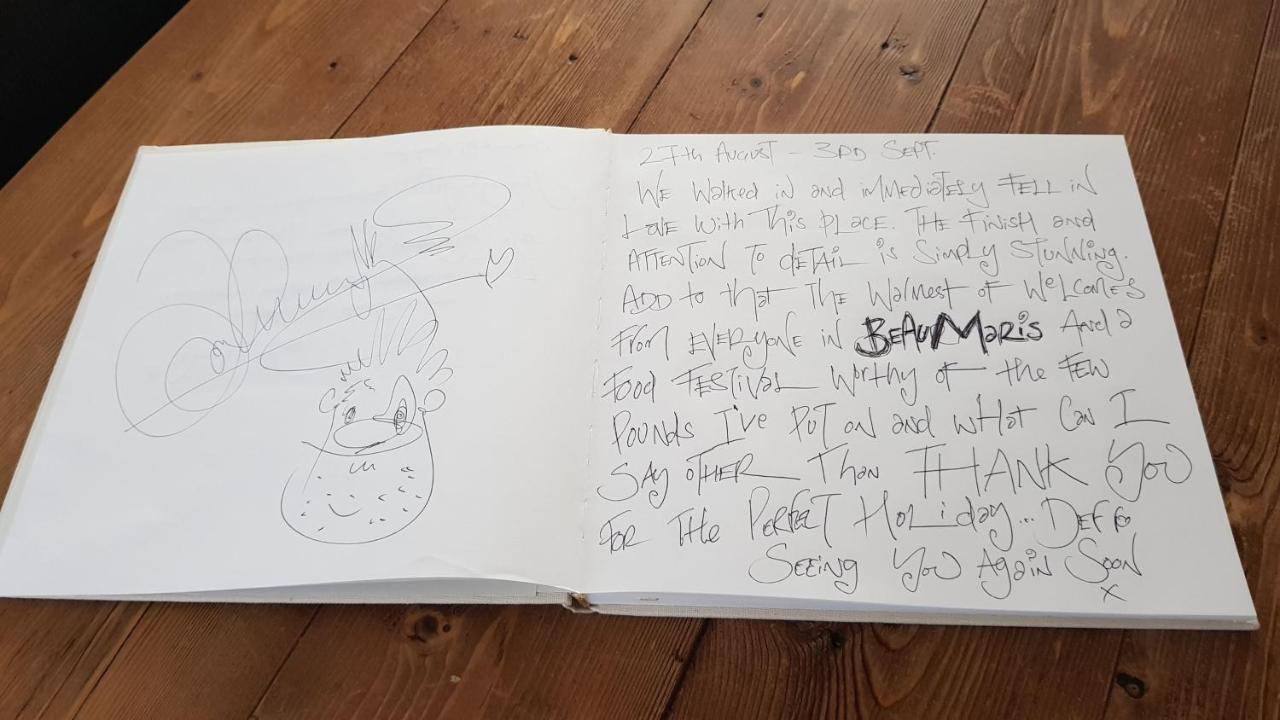 27th August - 3RD SEPT.
WE Walked in and immEDiATELy FELL in
LOVE With This PLACE. THE Finish and
ATTENTION TO DETAIL is Simply STUNNing.
ADD to that THE WarmEST of WELCOMES
From EVERyonE in BEAUMaris And a
FOOD FESTIVAL Worthy of the FEW
POUNDS I've PUT on and wHat Can I
SAy OTHER Than THANK YOU
FOR THE PERFECT HoLiday... DEFFo
SEEing YOU Again Soon
x